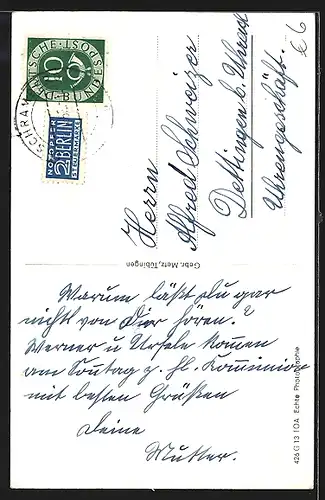 DEUTSCHE BUNDESPOST
10
SCHRAM
NOTOPFER
2 BERLIN
STEUERMARKE
€ 6
Herrn
Alfred Schweizer
Dettingen b. Urach
Uhrengeschäft.
Gebr. Metz, Tübingen
Warum läßt Du gar
nichts von Dir hören?
Werner u Ursele kommen
am Sonntag z. hl. Kommunion
mit besten Grüßen
Deine
Mutter.
426 G 13 IOA Echte Photographie